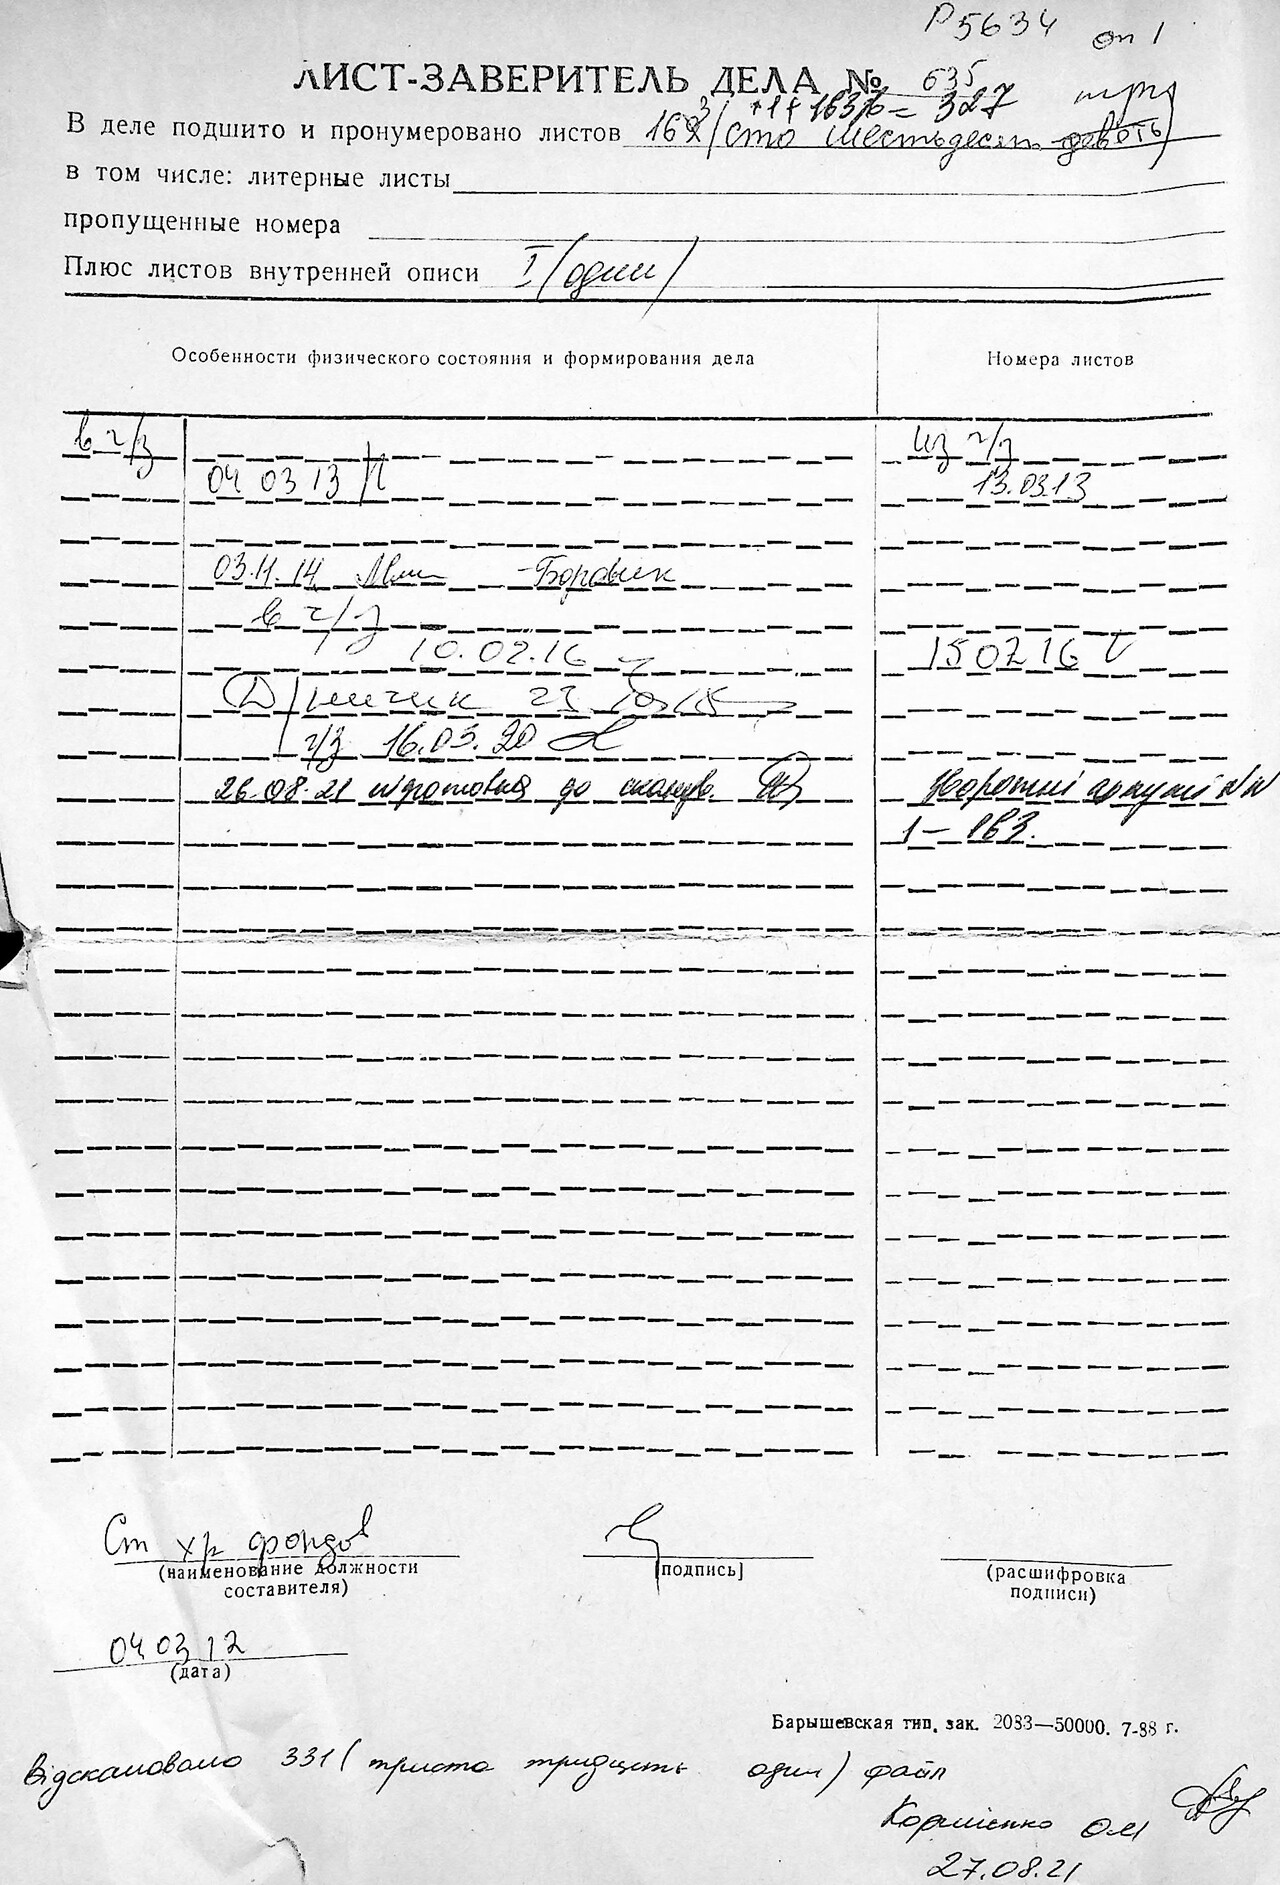 Р5634 оп 1
ЛИСТ-ЗАВЕРИТЕЛЬ ДЕЛА № 635
+1+163зв = 327 три
В деле подшито и пронумеровано листов 163 (сто шестьдесят девять)
в том числе: литерные листы
пропущенные номера
Плюс листов внутренней описи 1 (один)
Особенности физического состояния и формирования дела Номера листов
в ч/з из ч/з
04 03 13 13.03.13
03.11.14 Боровик
в ч/з
10.02.16 15 02 16
23
ч/з 16.03.20
26.08.21 підготовка до сканув. Зворотні аркуші NN
1 – 163.
Ст хр фондов
(наименование должности составителя) [подпись] (расшифровка подписи)
04 03 12
(дата)
Барышевская тип. зак. 2083—50000. 7-88 г.
Відскановано 331 (триста тридцять один) файл
Корнієнко ОМ
27.08.21